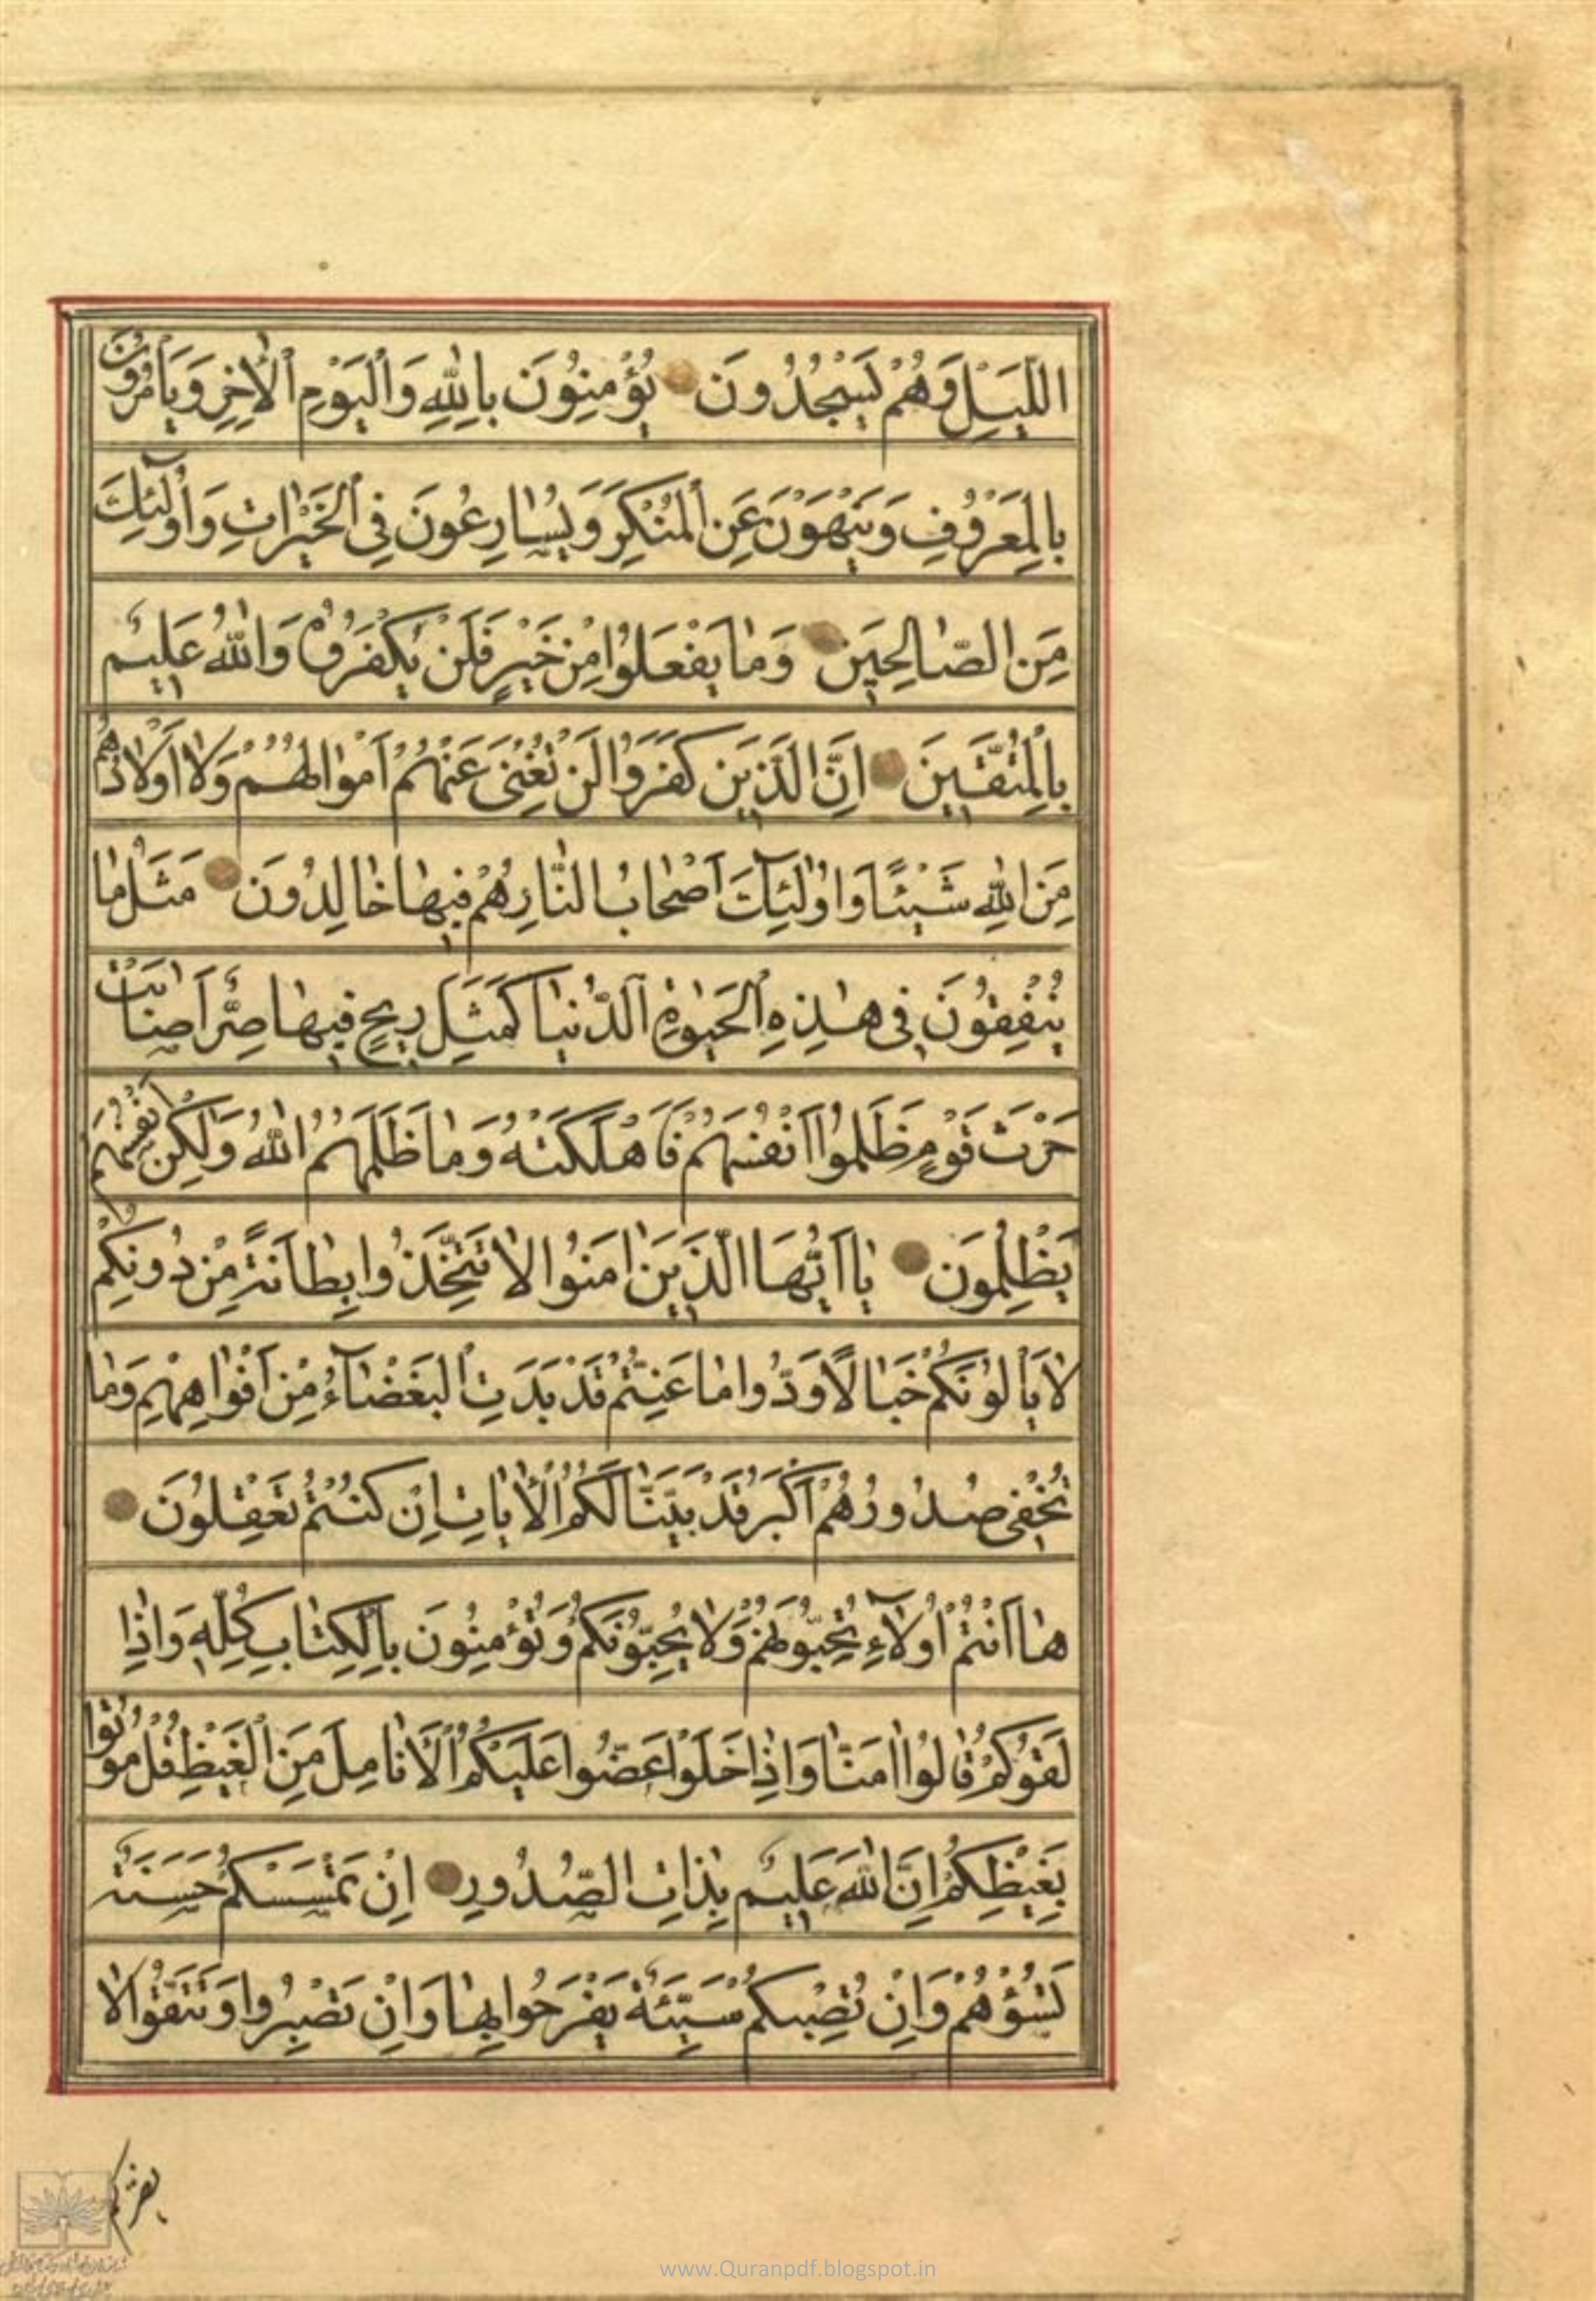 اللَّيْلِ وَهُمْ يَسْجُدُونَ يُؤْمِنُونَ بِاللّٰهِ وَالْيَوْمِ الْاٰخِرِ وَيَأْمُرُونَ
بِالْمَعْرُوفِ وَيَنْهَوْنَ عَنِ الْمُنْكَرِ وَيُسٰارِعُونَ فِي الْخَيْرٰاتِ وَاُولٰٓئِكَ
مِنَ الصّٰالِحِينَ وَمٰا يَفْعَلُوا مِنْ خَيْرٍ فَلَنْ يُكْفَرُوهُ وَاللّٰهُ عَلِيمٌ
بِالْمُتَّقِينَ اِنَّ الَّذِينَ كَفَرُوا لَنْ تُغْنِيَ عَنْهُمْ اَمْوٰالُهُمْ وَلٰا اَوْلٰادُهُمْ
مِنَ اللّٰهِ شَيْئًا وَاُولٰٓئِكَ اَصْحٰابُ النّٰارِ هُمْ فِيهٰا خٰالِدُونَ مَثَلُ مٰا
يُنْفِقُونَ فِي هٰذِهِ الْحَيٰوةِ الدُّنْيٰا كَمَثَلِ رِيحٍ فِيهٰا صِرٌّ اَصٰابَتْ
حَرْثَ قَوْمٍ ظَلَمُوا اَنْفُسَهُمْ فَاَهْلَكَتْهُ وَمٰا ظَلَمَهُمُ اللّٰهُ وَلٰكِنْ اَنْفُسَهُمْ
يَظْلِمُونَ يٰا اَيُّهَا الَّذِينَ اٰمَنُوا لٰا تَتَّخِذُوا بِطٰانَةً مِنْ دُونِكُمْ
لٰا يَأْلُونَكُمْ خَبٰالًا وَدُّوا مٰا عَنِتُّمْ قَدْ بَدَتِ الْبَغْضٰٓاءُ مِنْ اَفْوٰاهِهِمْ وَمٰا
تُخْفِي صُدُورُهُمْ اَكْبَرُ قَدْ بَيَّنّٰا لَكُمُ الْاٰيٰاتِ اِنْ كُنْتُمْ تَعْقِلُونَ
هٰا اَنْتُمْ اُولٰٓاءِ تُحِبُّونَهُمْ وَلٰا يُحِبُّونَكُمْ وَتُؤْمِنُونَ بِالْكِتٰابِ كُلِّهِ وَاِذٰا
لَقُوكُمْ قٰالُوا اٰمَنّٰا وَاِذٰا خَلَوْا عَضُّوا عَلَيْكُمُ الْاَنٰامِلَ مِنَ الْغَيْظِ قُلْ مُوتُوا
بِغَيْظِكُمْ اِنَّ اللّٰهَ عَلِيمٌ بِذٰاتِ الصُّدُورِ اِنْ تَمْسَسْكُمْ حَسَنَةٌ
تَسُؤْهُمْ وَاِنْ تُصِبْكُمْ سَيِّئَةٌ يَفْرَحُوا بِهٰا وَاِنْ تَصْبِرُوا وَتَتَّقُوا لٰا
يضركم
www.Quranpdf.blogspot.in